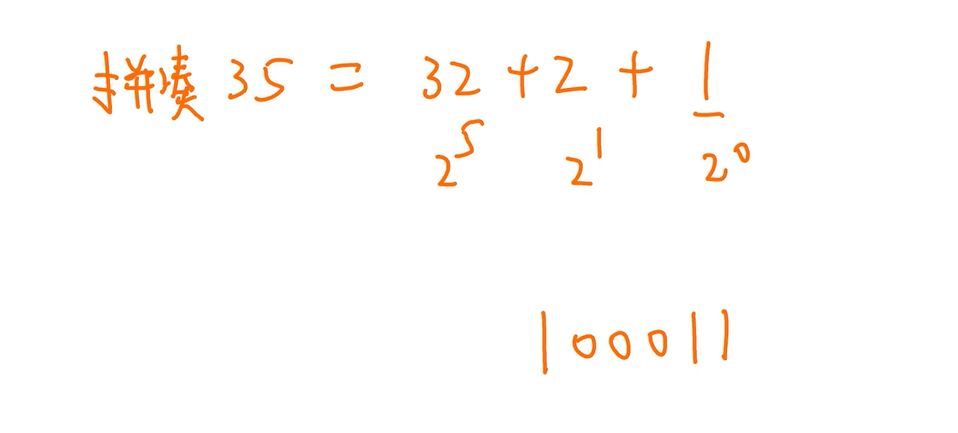 拼凑 35 = 32 + 2 + 1
2^5 2^1 2^0
100011